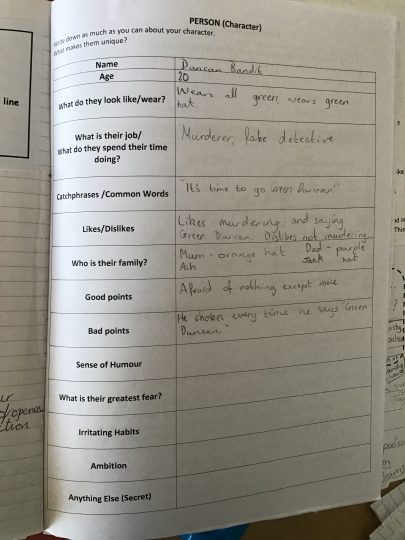 PERSON (Character)
down as much as you can about your character.
What makes them unique?
Name
Duncan Bandit
Age
20
What do they look like/wear?
Wears all green, wears green
hat.
What is their job/
What do they spend their time
doing?
Murderer, fake detective
Catchphrases /Common Words
"It's time to go Green Duncan"
Likes/Dislikes
Likes murdering, and saying
Green Duncan. Dislikes not murdering.
Who is their family?
Mum - orange hat Dad - purple
Ash Jack hat
Good points
Afraid of nothing except mice
Bad points
He chokes every time he says "Green
Duncan."
Sense of Humour
What is their greatest fear?
Irritating Habits
Ambition
Anything Else (Secret)
line